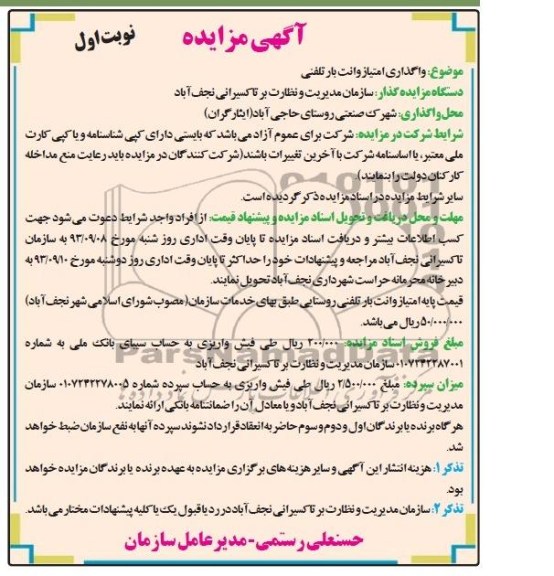 آگهی مزایده
نوبت اول
موضوع: واگذاری امتیاز وانت بار تلفنی
دستگاه مزایده گذار: سازمان مدیریت و نظارت بر تاکسیرانی نجف آباد
محل واگذاری: شهرک صنعتی روستای حاجی آباد (ایثارگران)
شرایط شرکت در مزایده: شرکت برای عموم آزاد می باشد که بایستی دارای کپی شناسنامه و یا کپی کارت
ملی معتبر، یا اساسنامه شرکت با آخرین تغییرات باشند (شرکت کنندگان در مزایده باید رعایت منع مداخله
کارکنان دولت را بنمایند).
سایر شرایط مزایده در اسناد مزایده ذکر گردیده است.
مهلت و محل دریافت و تحویل اسناد مزایده و پیشنهاد قیمت: از افراد واجد شرایط دعوت می شود جهت
کسب اطلاعات بیشتر و دریافت اسناد مزایده تا پایان وقت اداری روز شنبه مورخ ۹۳/۰۹/۰۸ به سازمان
تاکسیرانی نجف آباد مراجعه و پیشنهادات خود را حداکثر تا پایان وقت اداری روز دوشنبه مورخ ۹۳/۰۹/۱۰ به
دبیرخانه محرمانه حراست شهرداری نجف آباد تحویل نمایند.
قیمت پایه امتیاز وانت بار تلفنی روستایی طبق بهای خدمات سازمان (مصوب شورای اسلامی شهر نجف آباد)
۵۰/۰۰۰/۰۰۰ ریال می باشد.
مبلغ فروش اسناد مزایده: ۲۰۰/۰۰۰ ریال طی فیش واریزی به حساب سیبای بانک ملی به شماره
۰۱۰۷۲۴۲۲۸۷۰۰۱ سازمان مدیریت و نظارت بر تاکسیرانی نجف آباد
میزان سپرده: مبلغ ۲/۵۰۰/۰۰۰ ریال طی فیش واریزی به حساب سپرده شماره ۰۱۰۷۲۴۲۲۷۸۰۰۵ سازمان
مدیریت و نظارت بر تاکسیرانی نجف آباد و یا معادل آن را ضمانتنامه بانکی ارائه نمایند.
هرگاه برنده یا برندگان اول و دوم و سوم حاضر به انعقاد قرارداد نشوند سپرده آنها به نفع سازمان ضبط خواهد
شد.
تذکر ۱: هزینه انتشار این آگهی و سایر هزینه های برگزاری مزایده به عهده برنده یا برندگان مزایده خواهد
بود.
تذکر ۲: سازمان مدیریت و نظارت بر تاکسیرانی نجف آباد در رد یا قبول یک یا کلیه پیشنهادات مختار می باشد.
حسنعلی رستمی - مدیر عامل سازمان
ParsNamadData